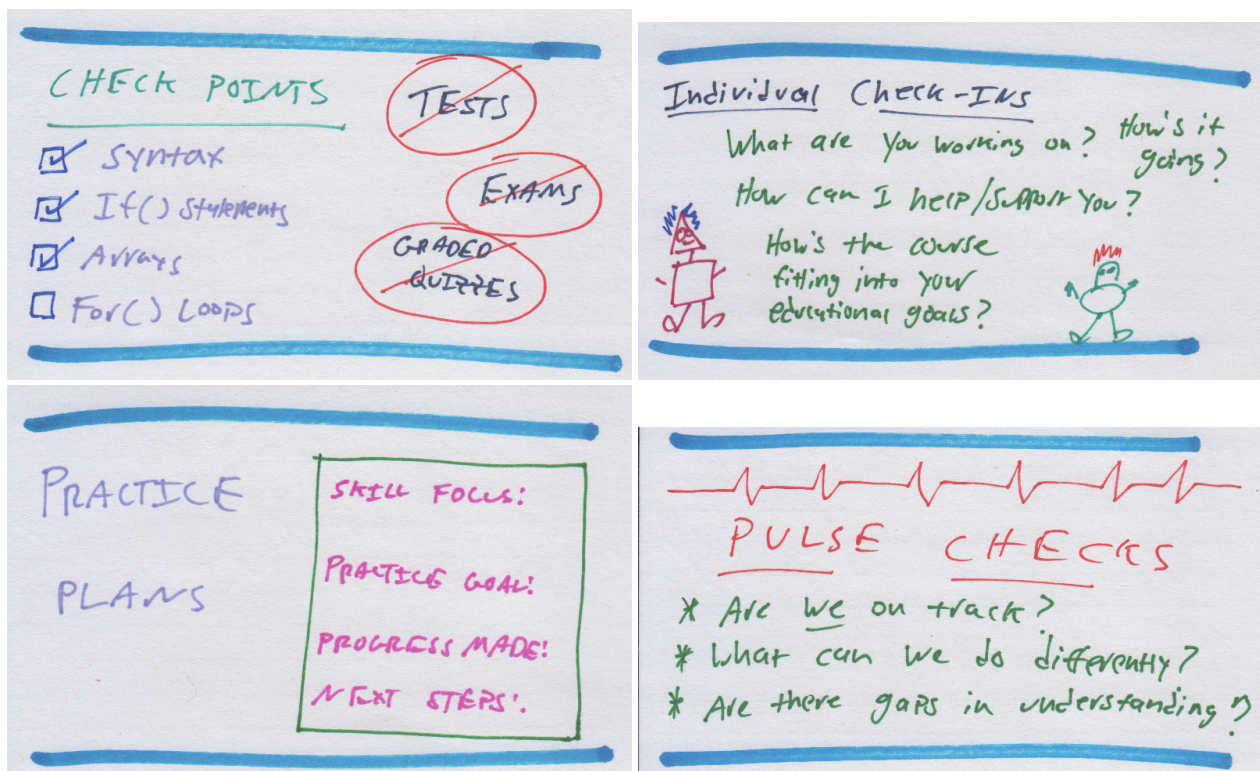 CHECK POINTS
Syntax
If() Statements
Arrays
For() Loops
TESTS
EXAMS
GRADED
QUIZZES
Individual Check-INs
What are you working on? How's it
going?
How can I help/support you?
How's the course
fitting into your
educational goals?
PRACTICE
PLANS
SKILL FOCUS:
PRACTICE GOAL:
PROGRESS MADE:
NEXT STEPS:
PULSE CHECKS
* Are we on track?
* What can we do differently?
* Are there gaps in understanding?